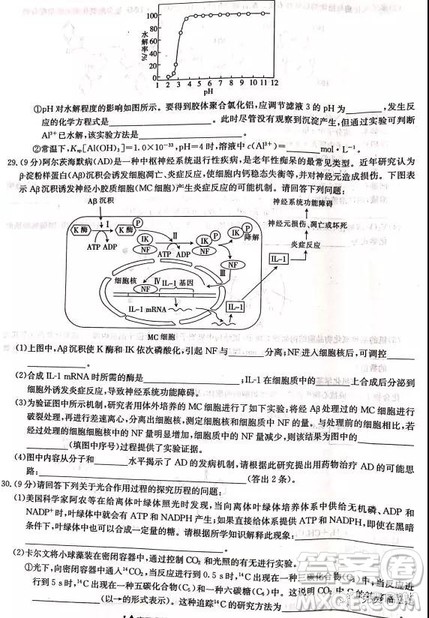 水解率/%
100
80
60
40
20
0
1 2 3 4 5 6 7 8 9 10 11 12
pH
①pH对水解程度的影响如图所示。要得到胶体聚合氯化铝,应调节滤液3的pH为________,发生反
应的化学方程式是________。此时尽管没有观察到沉淀产生,但通过实验可判断
Al³⁺已水解,该实验方法是________。
②常温下,Ksp[Al(OH)₃]=1.0×10⁻³³,pH=4时,溶液中c(Al³⁺)=________mol·L⁻¹。
29.(9分)阿尔茨海默病(AD)是一种中枢神经系统退行性疾病,是老年性痴呆的最常见类型。近年研究认为
β-淀粉样蛋白(Aβ)沉积会诱发细胞凋亡、炎症反应,使细胞内钙稳态失衡等,并对神经元造成损伤。下图表
示Aβ沉积诱发神经小胶质细胞(MC细胞)产生炎症反应的可能机制。请回答下列问题:
Aβ沉积
神经系统功能障碍
神经元损伤、凋亡或坏死
炎症反应
K酶 Ⅰ K酶 P
ATP ADP
IK NF Ⅱ IK P NF
ATP ADP
IK P 降解
NF Ⅲ
细胞核 Ⅳ IL-1基因
NF
IL-1 mRNA
IL-1
IL-1
MC细胞
(1)上图中,Aβ沉积使K酶和IK依次磷酸化,引起NF与________分离;NF进入细胞核后,可调控________
________。
(2)合成IL-1 mRNA时所需的酶是________;IL-1在细胞质中的________上合成后分泌到
细胞外诱发炎症反应,导致神经系统功能障碍。
(3)为验证图中所示机制,研究者用体外培养的MC细胞进行了如下实验:将经Aβ处理过的MC细胞进行
破裂处理,再进行差速离心,分离出细胞核,测定细胞核和细胞质中NF的量。与对照组相比,若
经过处理的细胞细胞核中的NF量明显增加,细胞质中的NF量减少,则该结果为图中的________
________(填图中序号)过程提供了实验证据。
(4)图中内容从分子和________水平揭示了AD的发病机制,请据此研究提出用药物治疗AD的可能思
路:________。
30.(9分)请回答下列关于光合作用过程的探究历程的问题:
(1)美国科学家阿农等在给离体叶绿体照光时发现,当向离体叶绿体培养体系中供给无机磷、ADP和
NADP⁺时,叶绿体中就会有ATP和NADPH产生;只要供给了ATP和NADPH,即使在黑暗
条件下,叶绿体中也可以合成一定量的糖。请根据所学知识解释此现象:________
________。
(2)卡尔文将小球藻装在密闭容器中,通过控制CO₂和光照的有无进行实验。
①光下,向密闭容器中通入¹⁴CO₂,当反应进行到0.5 s时,¹⁴C出现在一种三碳化合物(C₃)中,当反应进
行到5 s时,¹⁴C出现在一种五碳化合物(C₅)和一种六碳糖(C₆)中。这说明CO₂中C的转移途径为
________(以→的形式表示)。这种追踪¹⁴C的研究方法为________